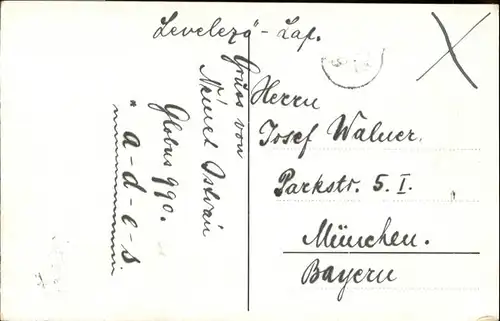 Levelező-Lap.
Gruss von
Német István
Globus 990.
"a-d-e-s
Herrn
Josef Walner.
Parkstr. 5. I.
München.
Bayern